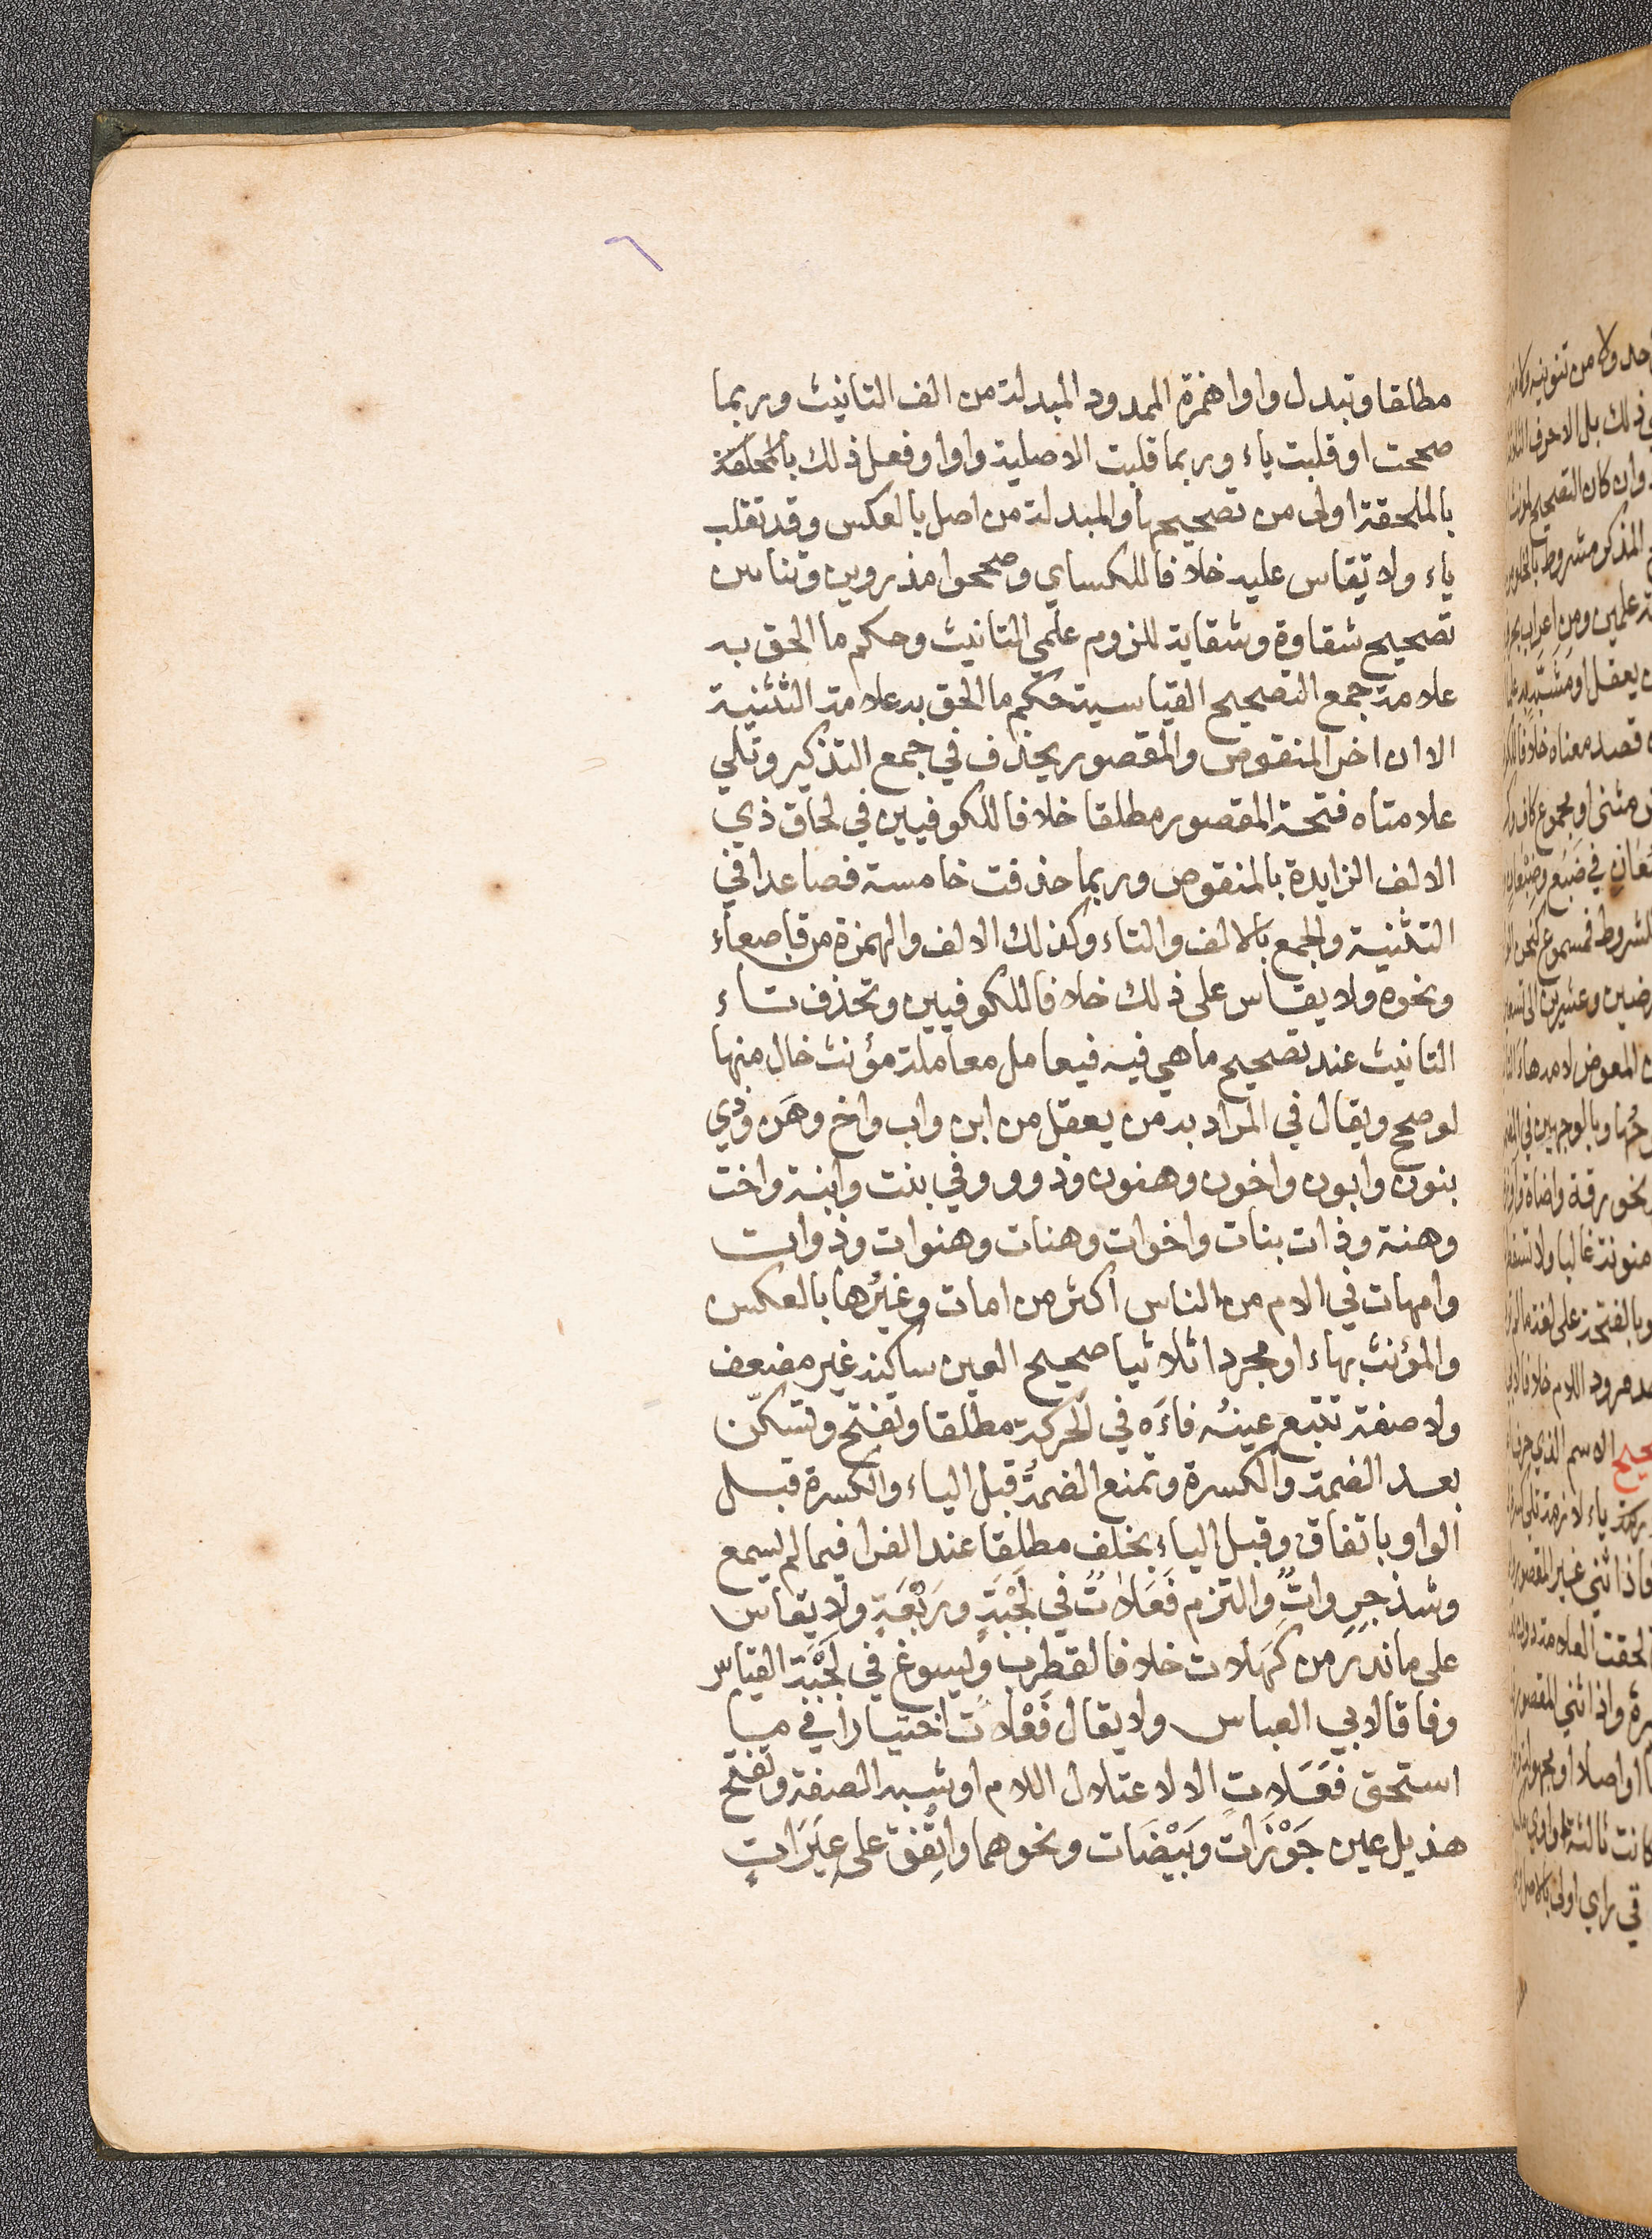 ٦
مطلقا وتبدل واوا همزة الممدود المبدلة من الف التانيث وربما
صححت او قلبت ياء وربما قلبت الاصلية واوا وفعل ذلك بالملحقة
بالملحقة اولى من تصحيحها والمبدلة من اصل بالعكس وقد تقلب
ياء ولا يقاس عليه خلافا للكساي وصححوا مذروين وثناين
تصحيح شقاوة وسقاية للزوم علمي التانيث وحكم ما الحق به
علامة جمع التصحيح القياسية حكم ما الحق به علامة التثنية
الا ان اخر المنقوص والمقصور يحذف في جمع التذكير وتلي
علامتاه فتحة المقصور مطلقا خلافا للكوفيين في الحاق ذي
الالف الزايدة بالمنقوص وربما حذفت خامسة فصاعدا في
التثنية والجمع بالالف والتاء وكذلك الالف والهمزة من قاصعاء
ونحوه ولا يقاس على ذلك خلافا للكوفيين وتحذف تاء
التانيث عند تصحيح ما هي فيه فيعامل معاملة مؤنث خال منها
لو صحح ويقال في المراد به من يعقل من ابن واب واخ وهَن وذي
بنون وابون واخون وهنون وذوو وفي بنت وابنة واخت
وهنة وذات بنات واخوات وهنات وهنوات وذوات
وامهات في الام من الناس اكثر من امات وغيرُها بالعكس
والمؤنث بهاء او مجردا ثلاثيا صحيح العين ساكنه غير مضعف
ولا صفة تتبع عينُه فاءَه في الحركة مطلقا وتفتح وتسكّن
بعد الضمة والكسرة وتمنع الضمةُ قبل الياء والكسرة قبل
الواو باتفاق وقبل الياء بخلف مطلقا عند الفرا فيما لم يسمع
وشذ جِرِوات والتزم فَعَلاتٌ في لَجْبَةٍ ورَبْعَةٍ ولا يقاس
على ما ندر من كَهَلات خلافا لقطرب ويسوغ في لَجْبَة القياس
وفاقا لابي العباس ولا يقال فَعْلات اختيارا في ما
استحق فَعَلات الا لاعتلال اللام او شبه الصفة وتفتح
هذيل عين جَوَزات وبَيَضَات ونحوهما واتُفِق على عِيَرَاتٍ